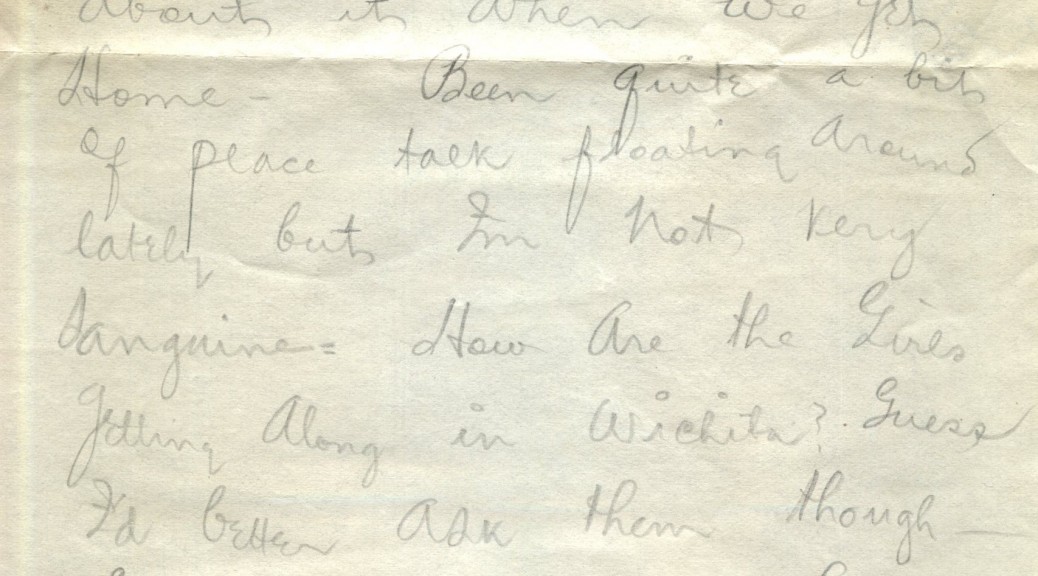 about it when we get
Home - Been quite a bit
Of peace talk floating Around
lately but Im Not very
Sanguine = How Are the Girls
Getting Along in Wichita? Guess
I'd better Ask them though —